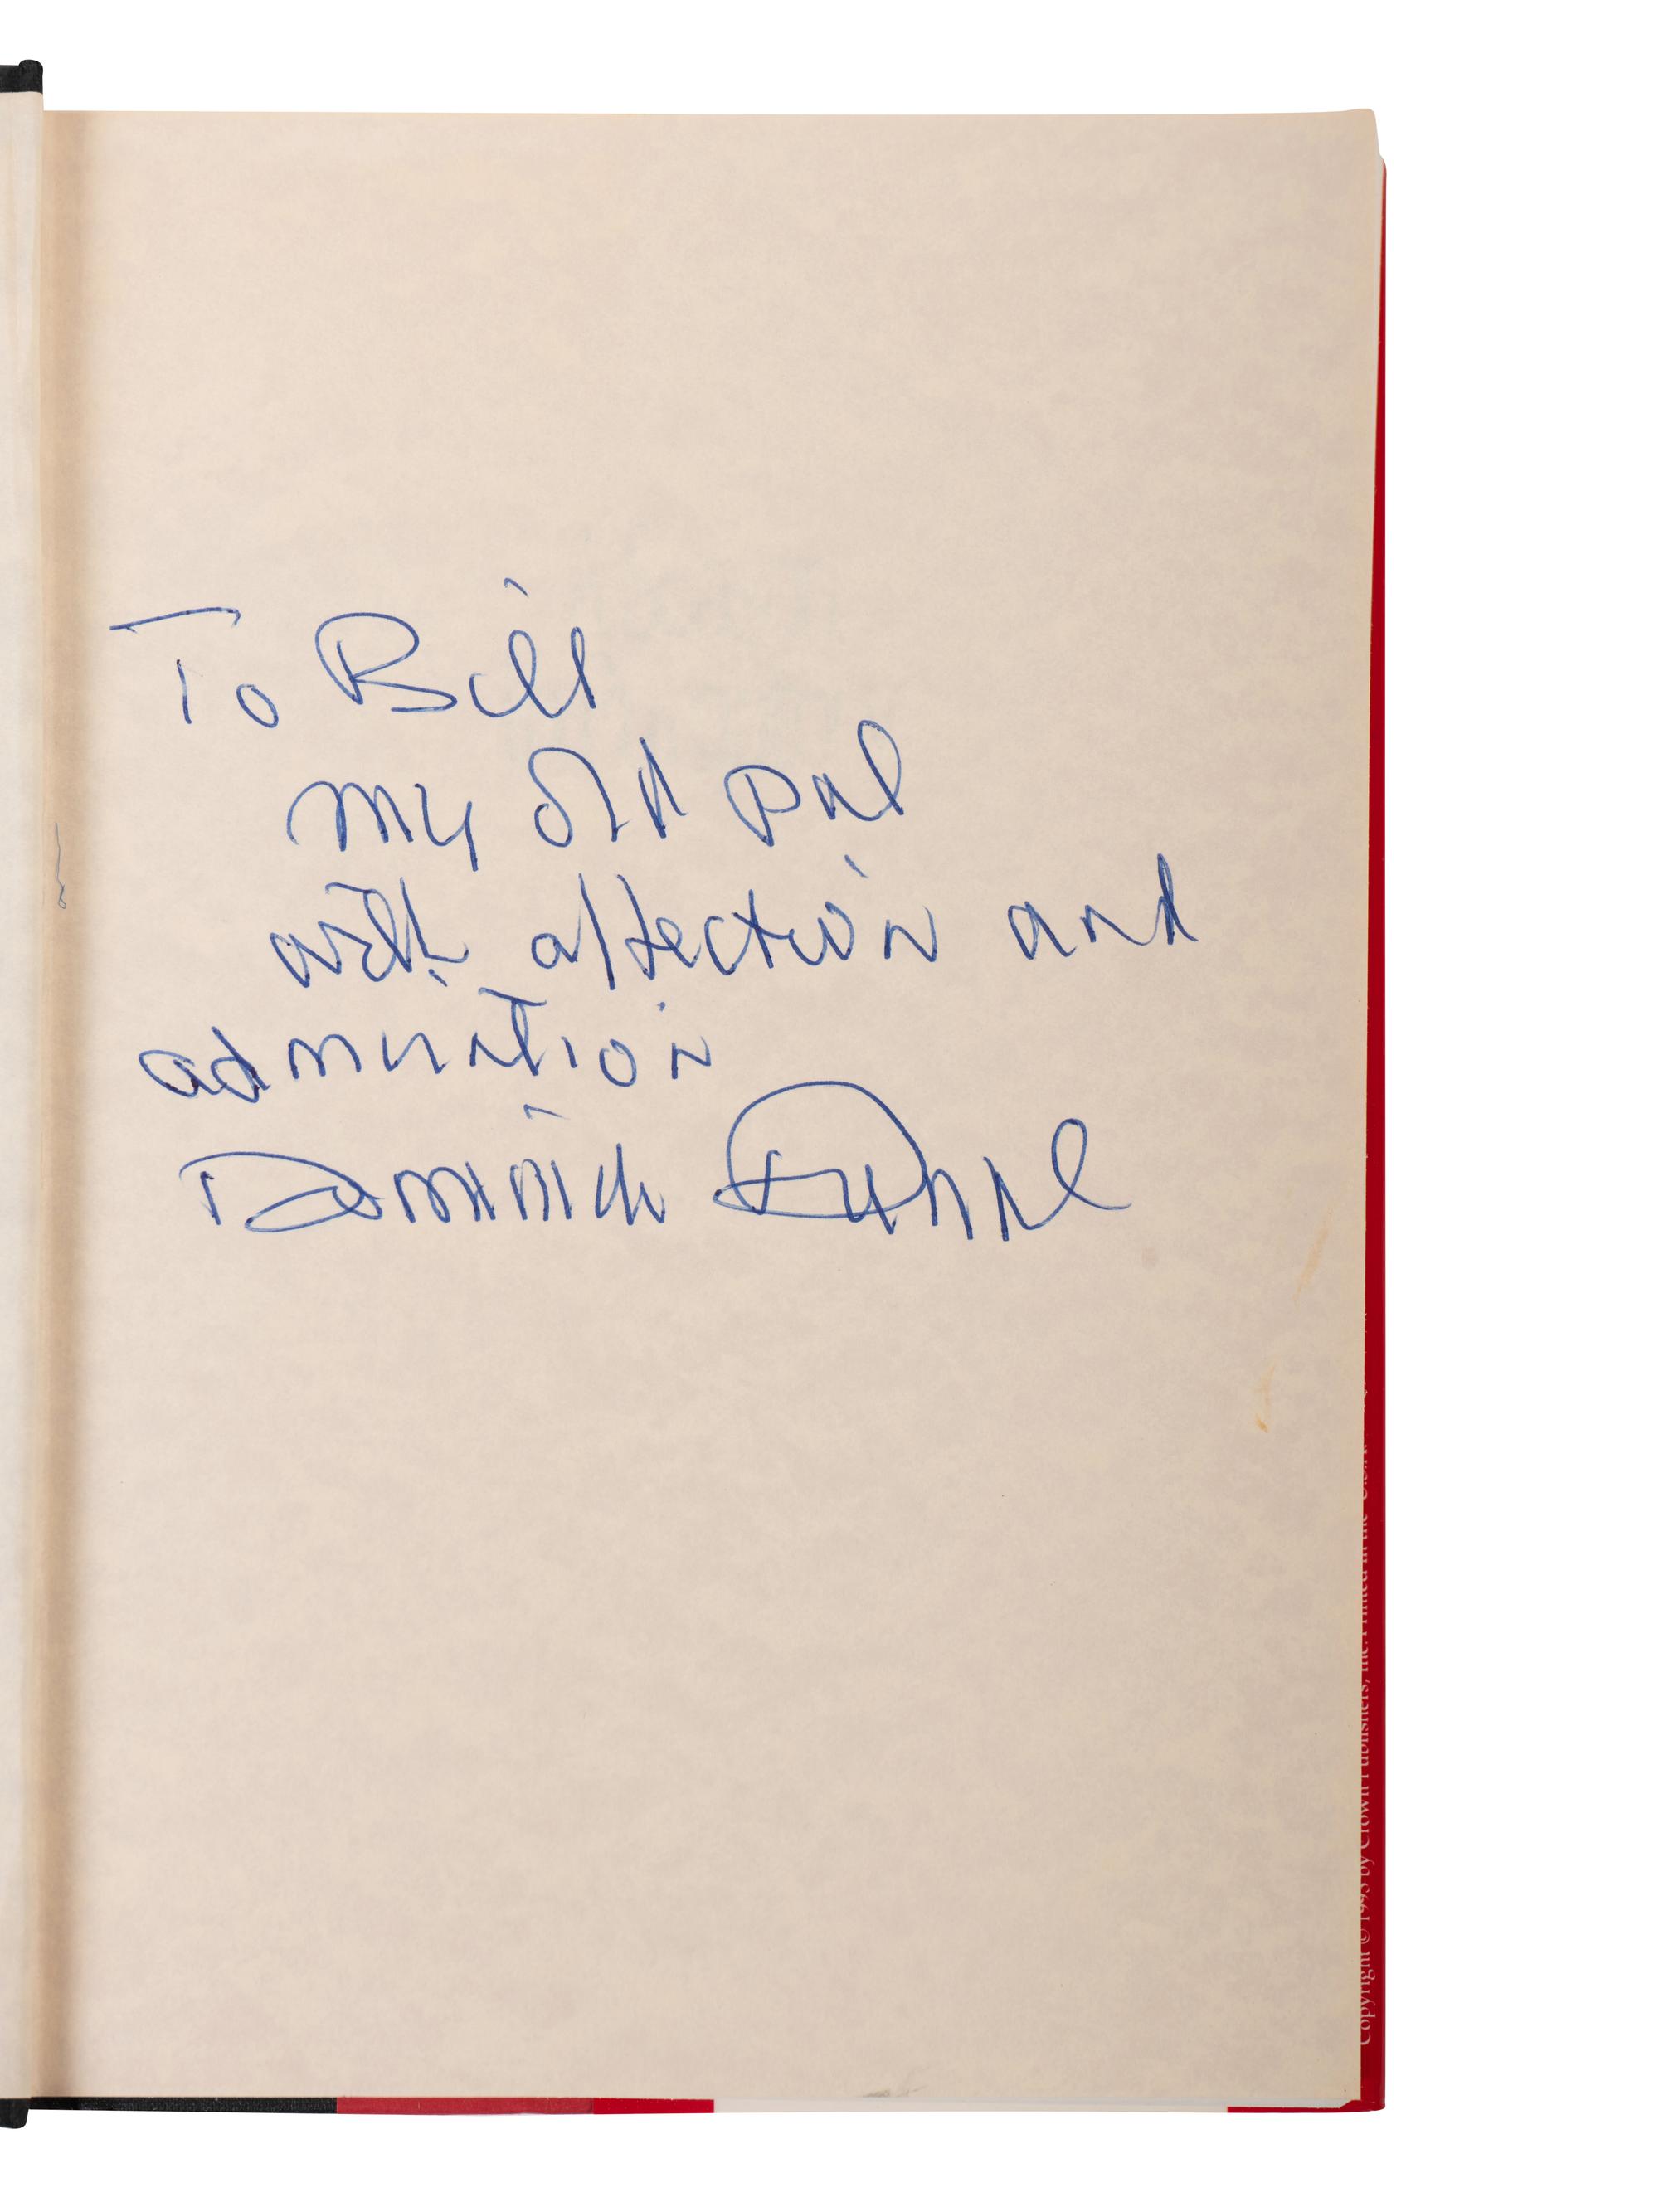 To Bill
my old pal
with affection and
admiration
Dominick Dunne
Copyright © 1993 by Crown Publishers, Inc. Printed in the U.S.A.